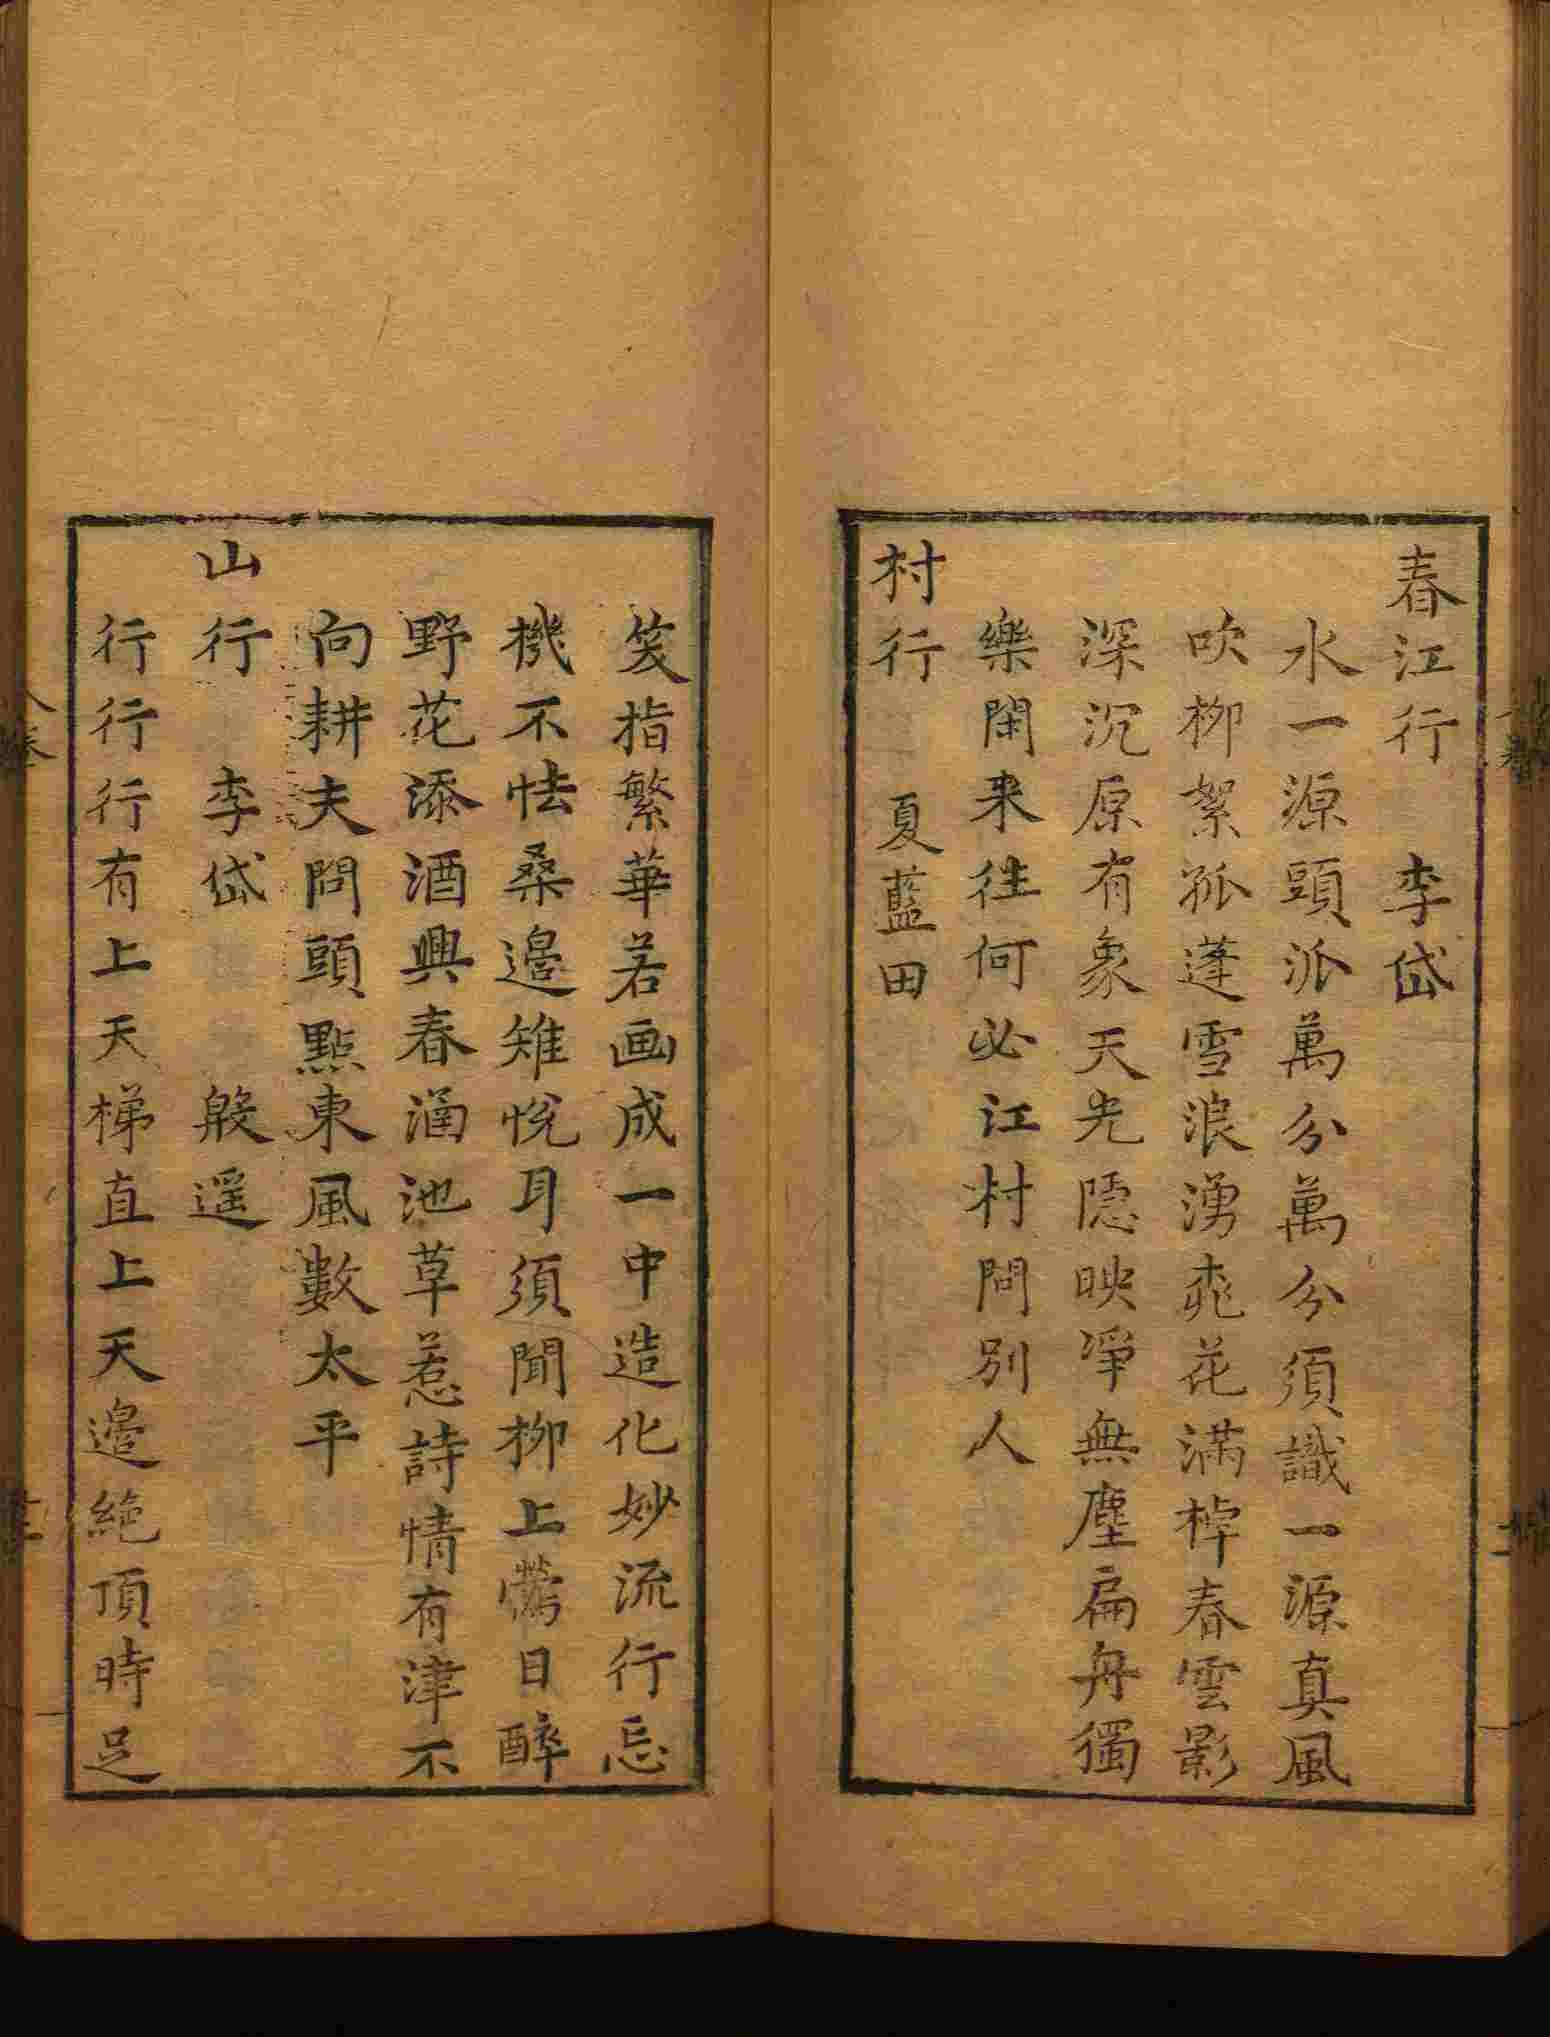 春江行　李岱
水一源頭派萬分萬分須識一源真風
吹柳絮孤蓬雪浪湧桃花滿棹春雲影
深沉原有象天光隱映凈無塵扁舟獨
樂閑来往何必江村問別人
村行　夏藍田
笑指繁華若画成一中造化妙流行忘
機不怯桑邉雉悅耳須聞柳上鶯日醉
野花添酒興春涵池草惹詩情有津不
向耕夫問頭點東風數太平
山行　李岱　般遥
行行行有上天梯直上天邉絶頂時足